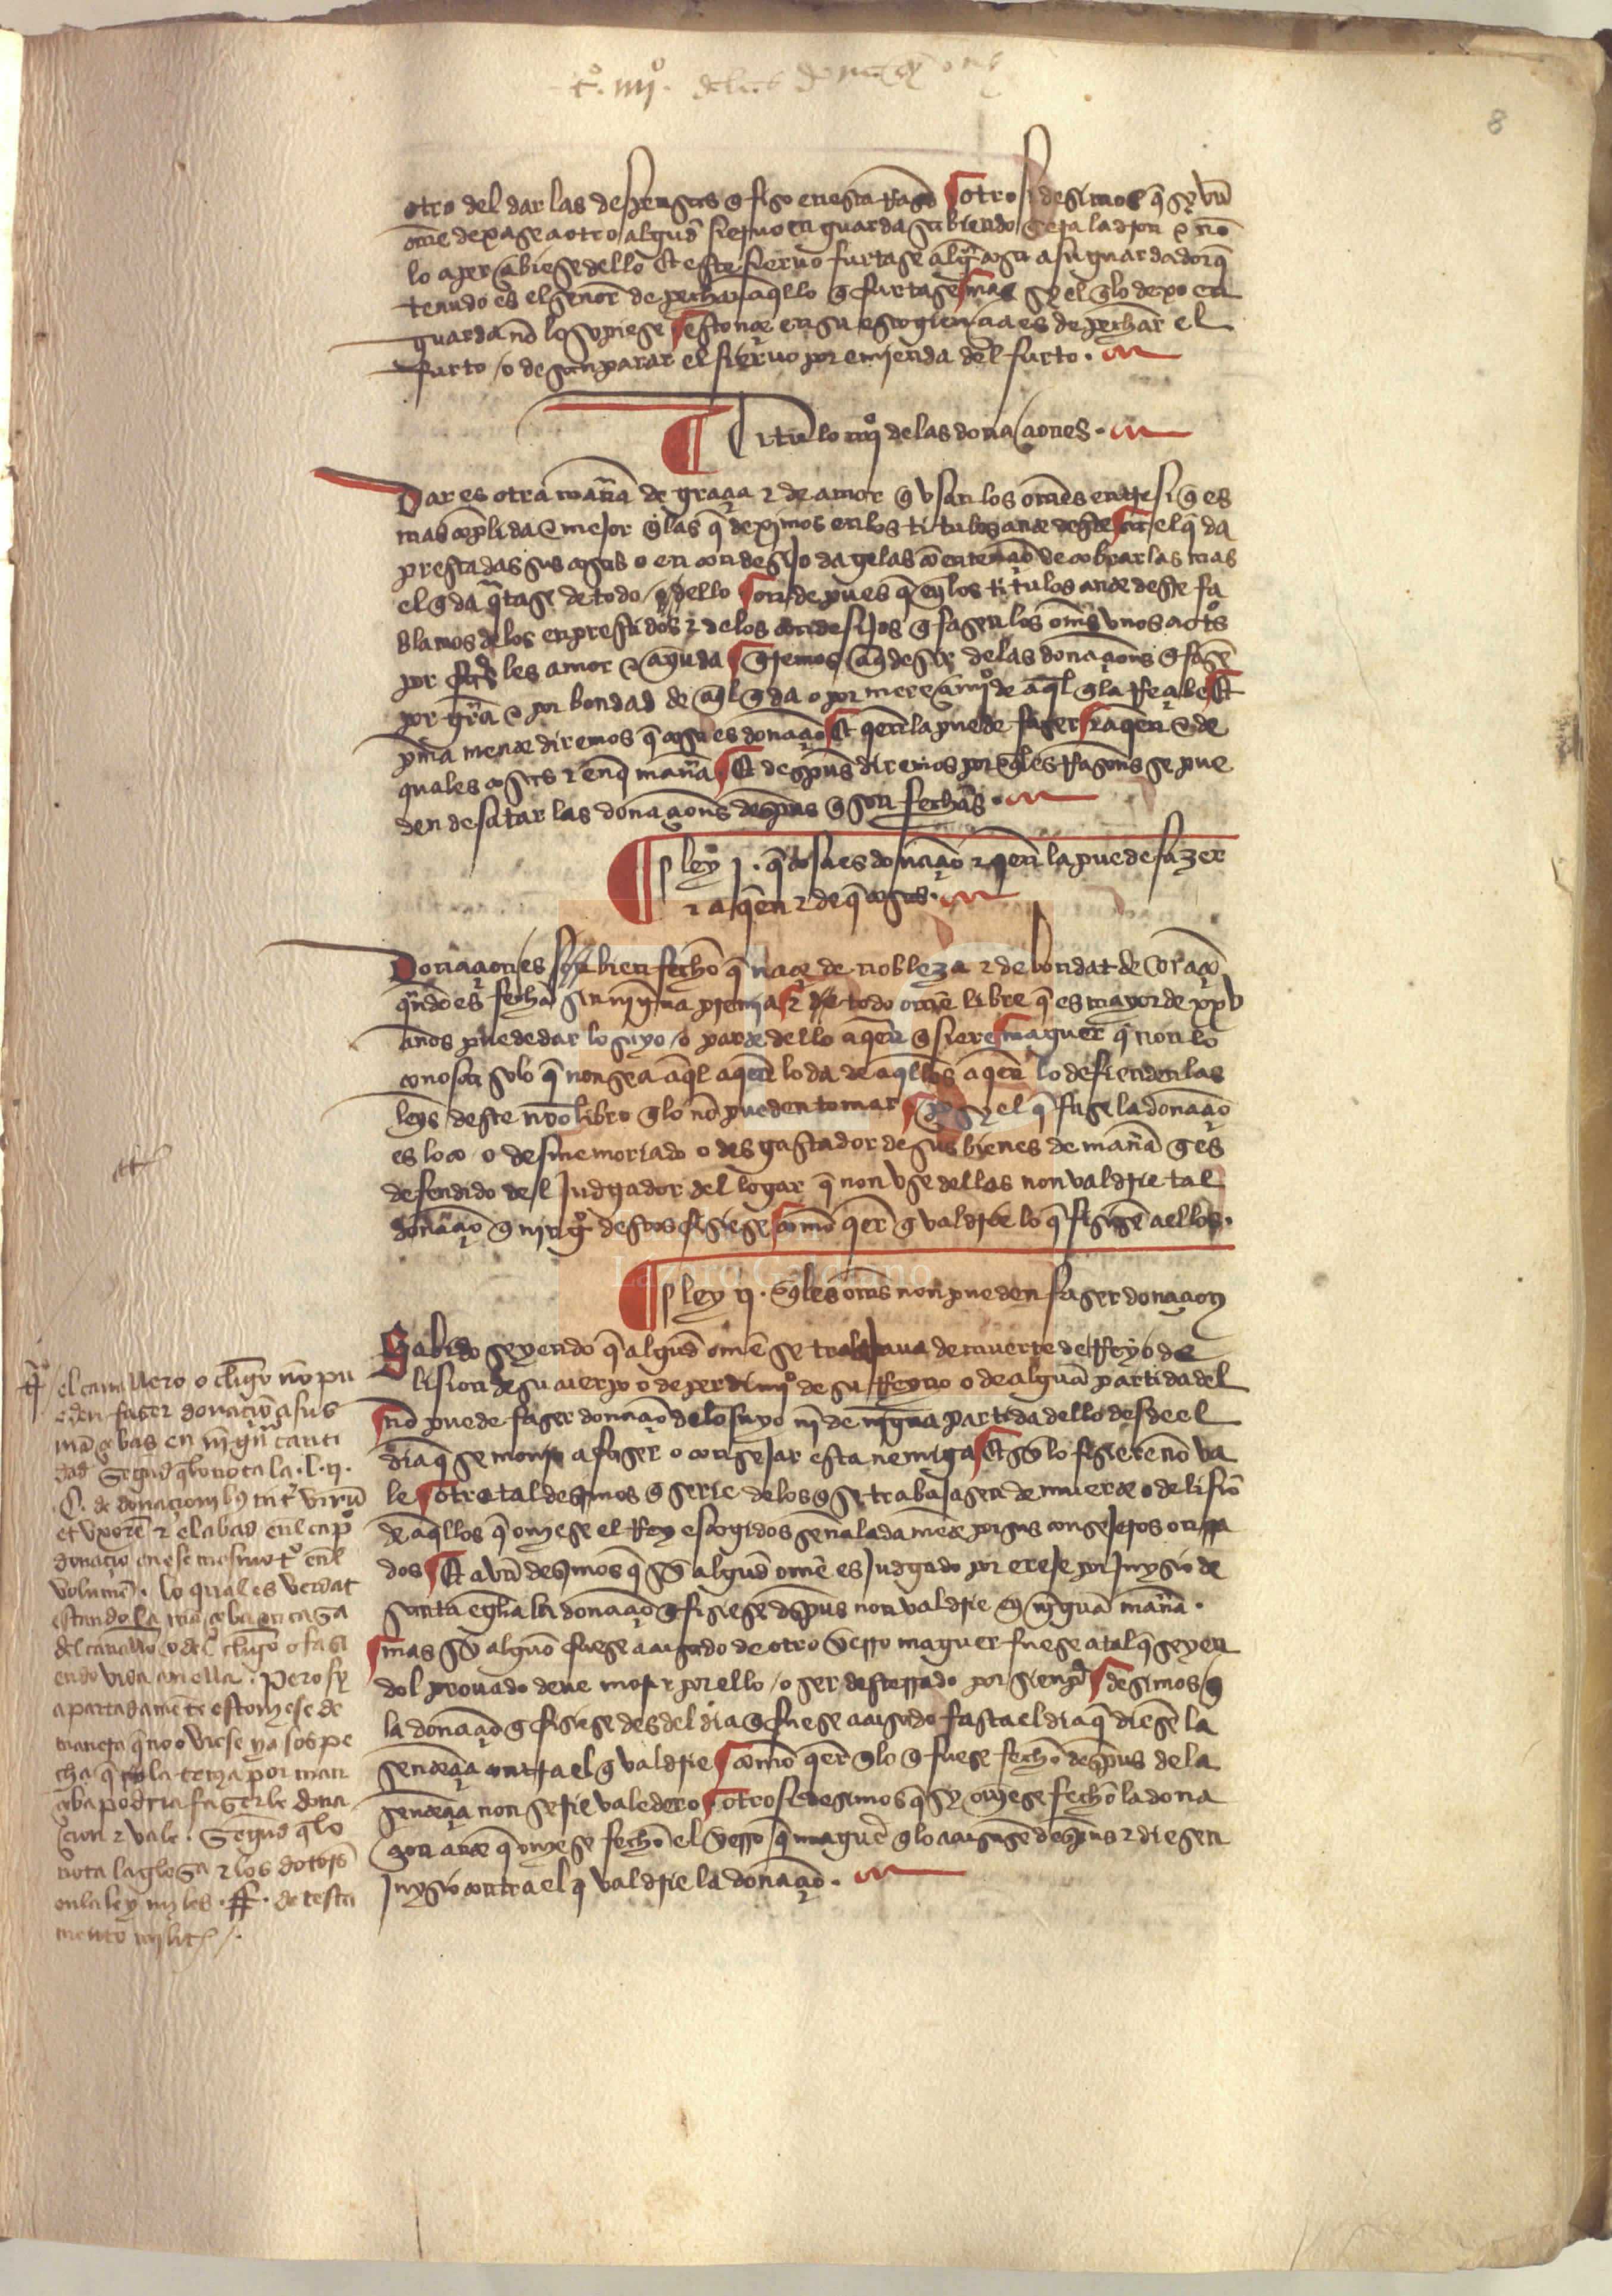 tº. iiijº. de las donaçiones
8
otro del dar las despensas q̃ fiso en esta rrasõ otrosi desimos q̃ sy vn̄
ome dexase a otro algud̃ sieruo en guarda sabiendo q̃ era ladron ⁊ nõ
lo aperçabiese dello Et este sieruo furtase alg̃ cosa a su guardador q̃
tenudo es el señor de pechar aq̃llo q̃ furtase mas sy el q̃ lo dexo en
guarda nõ lo sopiese estonçe en su escogiençia es de pechar el
furto / o desanparar el sieruo por emjenda del furto.
Titulo iiijº de las donaçiones.
Dar es otra mañã de graçia ⁊ de amor q̃ vsan los om̃s entre si q̃ es
mas conplida ⁊ mejor q̃ las q̃ deximos en los titulos ante deste ca el q̃ da
prestadas sus cosas o en condesijo dagelas cõ entençiõ de cobrar las mas
el q̃ da q̃tase de todo / dello onde pues q̃ en los titulos ante deste fa
blamos de los enprestidos ⁊ de los condesijos q̃ fasen los om̃s vnos a otºs
por fasʳ les amor ⁊ ayuda q̃remos aq̃ desir de las donaçiõns q̃ fasẽ
por grã ⁊ por bondad de aq̃l q̃ da o por mereçimjº de aq̃l q̃ la rreçibe Et
prim̃a mente diremos q̃ cosa es donaçiõ Et qen̄ la puede faser ⁊ a qen ⁊ de
quales cosas ⁊ en q̃ mañã Et despũs diremos por q̃les rrasons se pue
den desatar las donaçions despũs q̃ son fechas.
ley j. q̃ cosa es donaçiõ ⁊ qen̄ la puede fazer
⁊ a q̃en ⁊ de q̃ cosas.
Donaçion es bien fecho q̃ naçe de nobleza ⁊ de bondat de coraçõ
q̃ndo es fecha sin nj̃g̃na premja ⁊ todo ome libre q̃ es mayor de xxv
años puede dar lo suyo / o parte dello a qen̄ q̃siere maguer q̃ non lo
conosca solo q̃ non sea aq̃l a qen̄ lo da de aq̃llos a qen̄ lo defienden las
leys deste nrõ libro q̃ lo nõ pueden tomar po sy el q̃ fase la donaçiõ
es loco o desmemoriado o desgastador de sus bienes de mañã q̃ es
defendido del judgador del logar q̃ non vse dellos non valdrie tal
donaçiõ q̃ njngº destos fisiese comõ qer̃ q̃ valdrie lo q̃ fisiesẽ a ellos.
ley ij. q̃les om̃s non pueden faser donaçion
Sabido seyendo q̃ algud̃ ome se trabajaua de muerte del rrey o de
lision de su cuerpo o de perdimjº de su rreyno o de alguã partida del
nõ puede faser donaçiõ de lo suyo nj̃ de nj̃gua partida dello desde el
dia q̃ se moujo a faser o consejar esta nemiga Et sy lo fisiere nõ va
le otro tal desimos q̃ serie de los q̃ se trabajasen de muerte o de lisiõ
de aq̃llos q̃ oujese el rrey escogidos señalada mẽte por sus consejeros onrra
dos Et avn̄ desimos q̃ sy algud̃ ome es judgado por ereje por juysio de
santa egl̃ia la donaçiõ q̃ fisiese despũs non valdrie en nj̃guã mañã.
mas sy alguõ fuese acusado de otro yerro maguer fuese atal q̃ seyen
dol prouado deue morir por ello / o ser desterrado por sienpʳ desimos q̃
la donaçiõ q̃ fisiese desdel dia q̃ fuese acusado fasta el dia q̃ diesẽ la
sentẽçia contra el q̃ valdrie comõ qer̃ q̃ lo q̃ fuese fecho despũs de la
sentẽçia non serie valedero otrosi desimos q̃ sy oujese fecho la dona
çion ante q̃ oujese fecho el yerro q̃ maguer̃ q̃ lo acusasẽ despũs ⁊ diesen
juysio contra el q̃ valdrie la donaçiõ.
el cauallero o cl̃igo nõ pu
eden faser donaciõ a sus
mãçebas en nj̃guñ canti
dad segũd q̃ lo nota la .l. ij.
.C. de donaçionibꝫ int̃ virũ
et vxorẽ ⁊ el abad en̄l capº
donaçio en ese mesmo tº en̄l
volumẽ. lo qual es verdat
estando la mãçeba en casa
del cauallrõ o del cl̃igo o fasi
endo vida con ella. Pero sy
apartadamẽte estouiese de
manera q̃ no oviese ya sospe
cha q̃ la tenja por man
çeba podria faserle dona
cion ⁊ vale. Segũd q̃ lo
nota la glosa ⁊ los dotors
en la ley miles .ff. de testa
mento milit̃